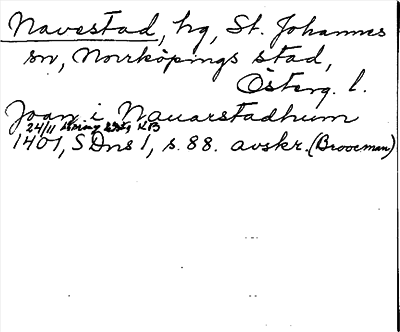 Navestad, hg, St. Johannes
sn, Norrköpings stad,
Österg. l.
Joan i Nauarstadhum
24/11 KB
1401, SDns 1, s. 88. avskr. (Brooeman)